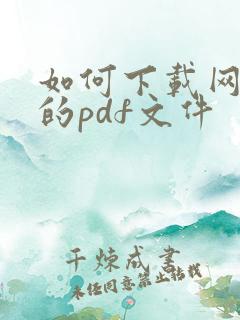 如何下载网
的pdf文件
千炼成书
未经同意禁止转载